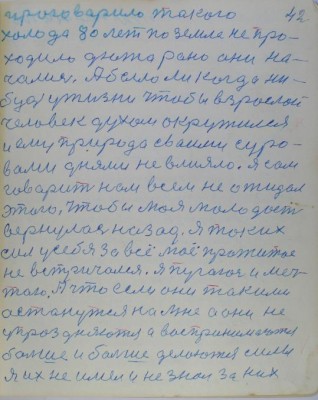 проговарило такого 42
холода 80 лет по земле не про-
ходило дюжа рано они на-
чались. А было ли когда ни-
будь у жизни чтобы взрослой
человек духом окружился
и ему природа своими суро-
вами днями не влияло. Я сам
говорит нам всем не ожидал
этого, чтобы моя молодость
вернулась назад. Я таких
сил у себя за всё моё прожитое
не встричался. Я пугаюс и меч-
таю, А что если они такими
останутся на мне а они не
упраздняются а воспринимаются
больше и больше делаются силы
я их не имел и не знал за них